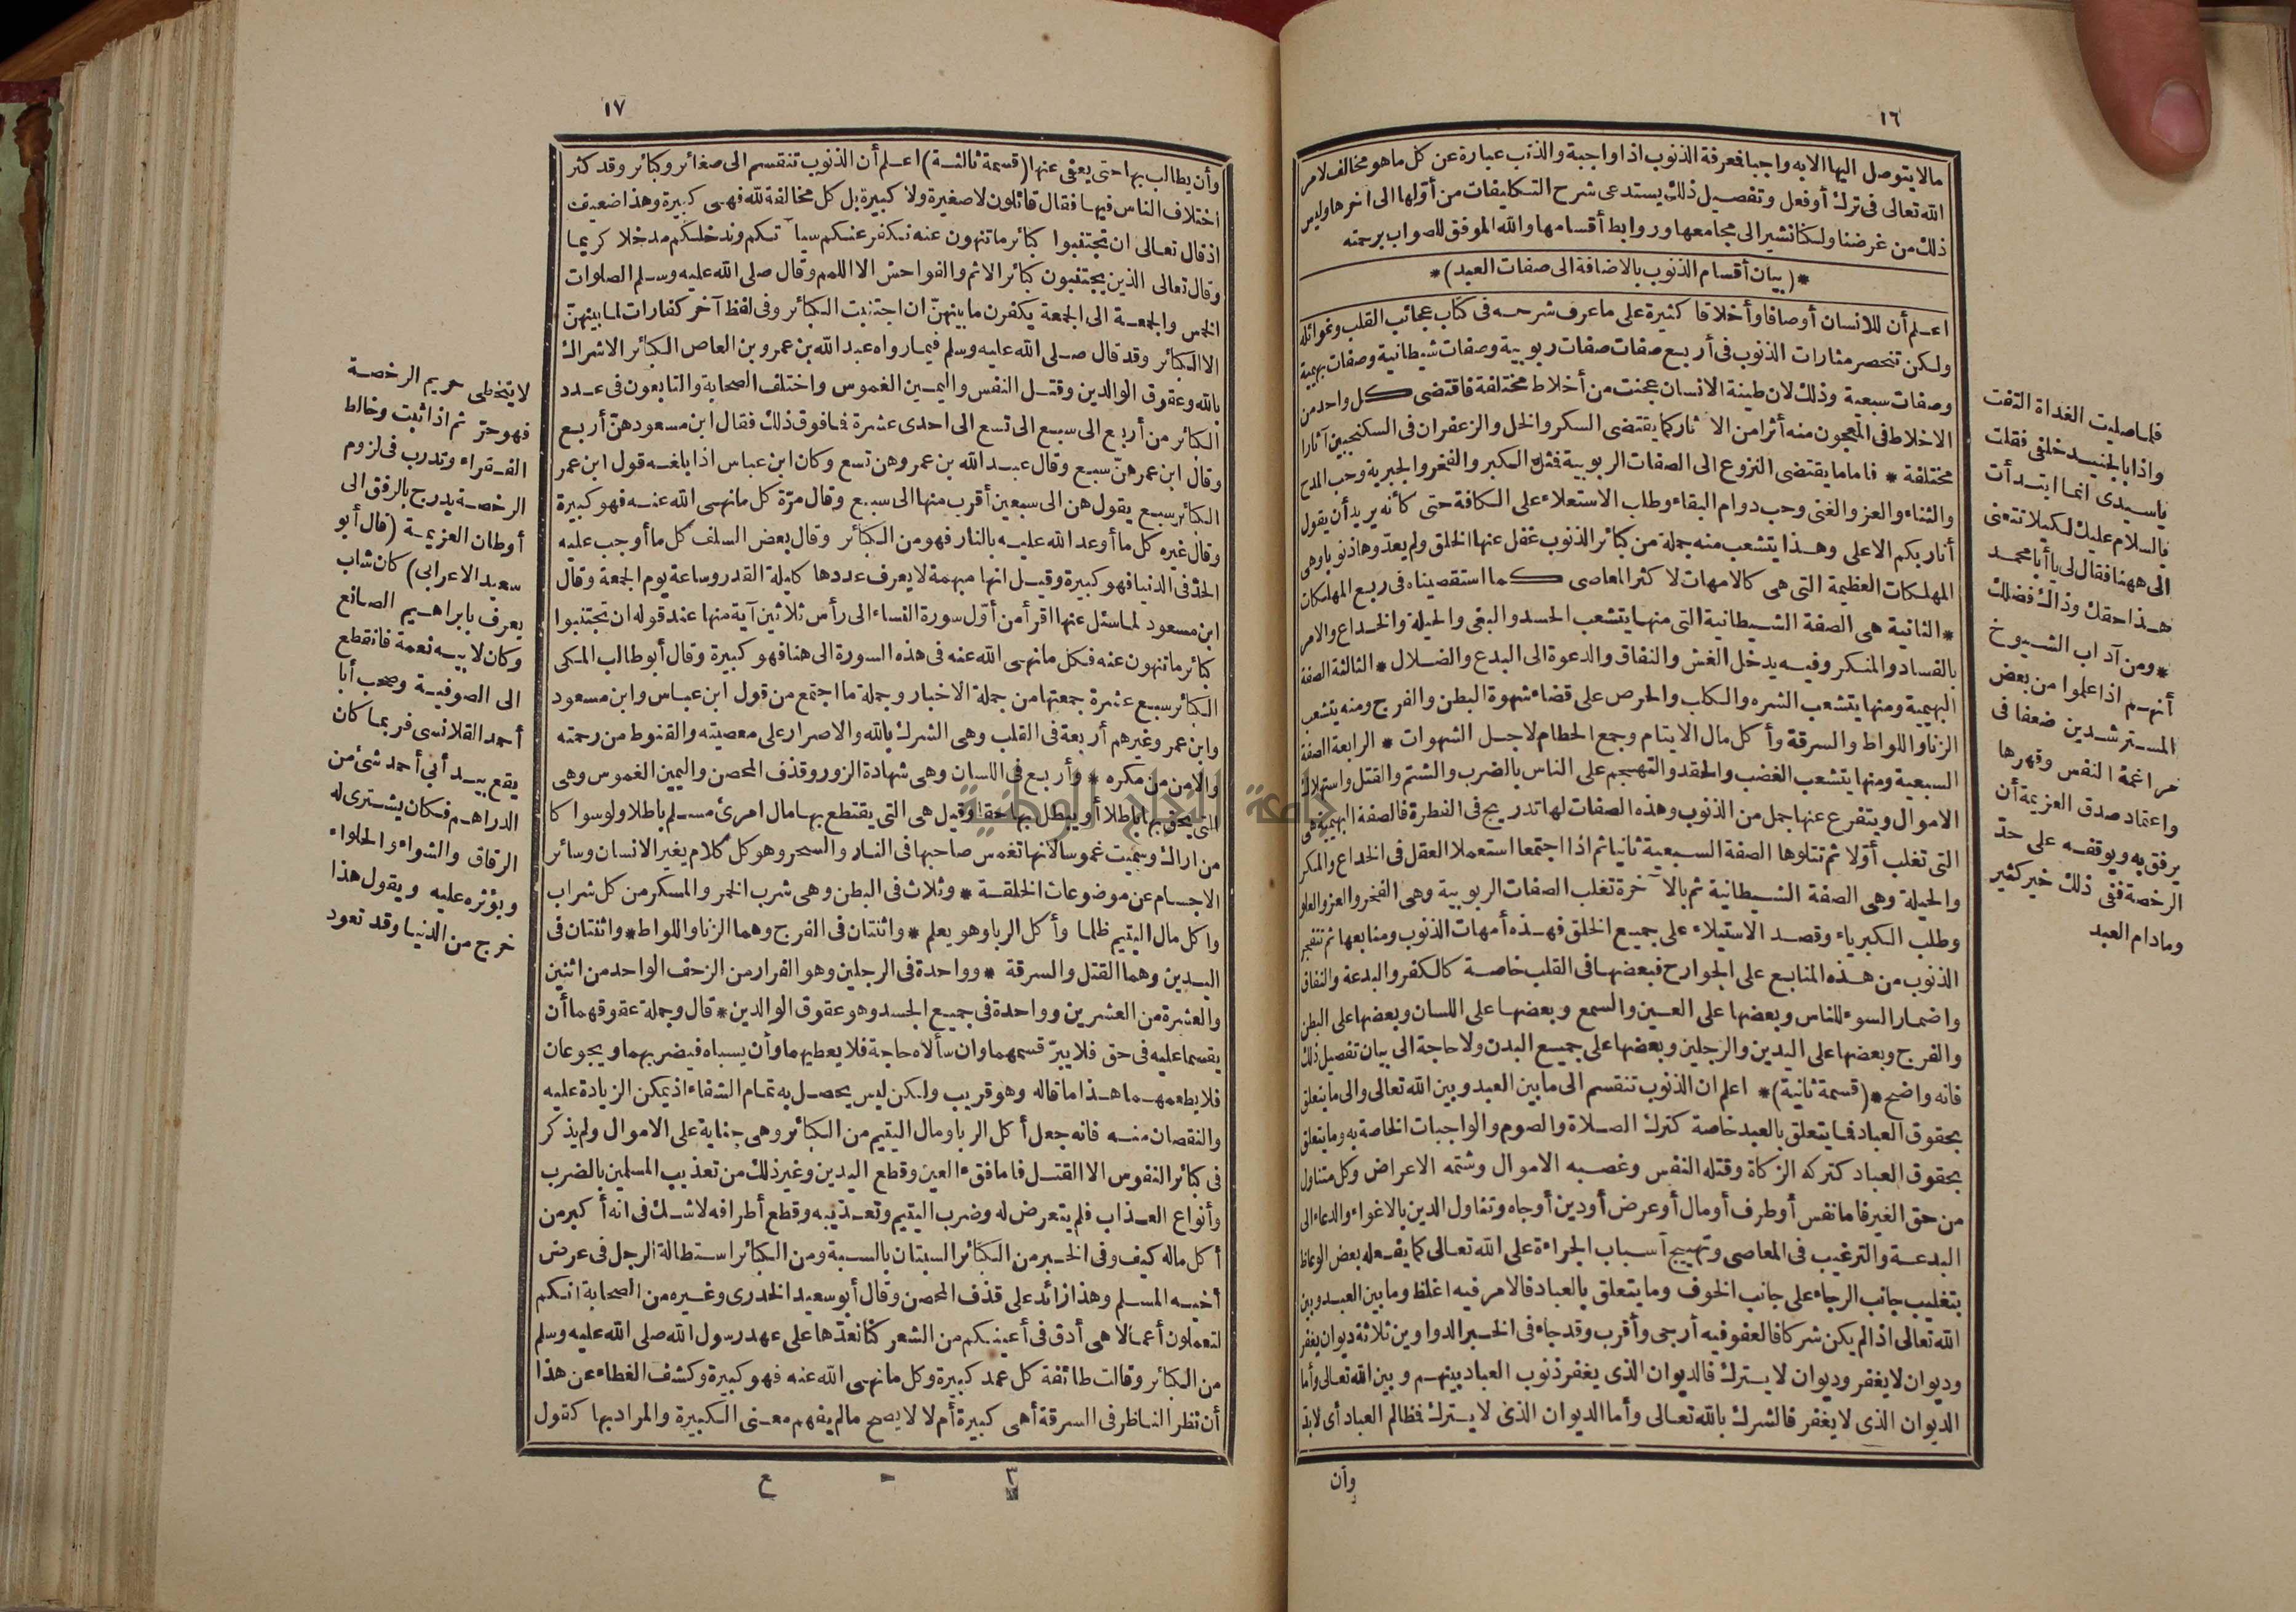 ١٦
مالا يتوصل اليها الا به واجبا فعرفة الذنوب اذا واجبة والذنب عبارة عن كل ماهو مخالف لامر
الله تعالى فى ترك أوفعل وتفصيل ذلك يستدعى شرح التكليفات من أولها الى آخرها وليس
ذلك من غرضنا ولكنا نشير الى مجامعها وروابط أقسامها والله الموفق للصواب برحمته
*(بيان أقسام الذنوب بالاضافة الى صفات العبد)*
اعلم أن للانسان أوصافا وأخلاقا كثيرة على ما عرف شرحه فى كتاب عجائب القلب وغوائله
ولكن تنحصر مثارات الذنوب فى أربع صفات صفات ربوبية وصفات شيطانية وصفات بهيمية
وصفات سبعية وذلك لان طينة الانسان عجنت من أخلاط مختلفة فاقتضى كل واحد من
الاخلاط فى المعجون منه أثرا من الآثار كما يقتضى السكر والخل والزعفران فى السكنجبين آثارا
مختلفة * فاما ما يقتضى النزوع الى الصفات الربوبية فمثل الكبر والفخر والجبرية وحب المدح
والثناء والعز والغنى وحب دوام البقاء وطلب الاستعلاء على الكافة حتى كأنه يريد أن يقول
أنا ربكم الاعلى وهذا يتشعب منه جملة من كبائر الذنوب غفل عنها الخلق ولم يعدّوها ذنوبا وهى
المهلكات العظيمة التى هى كالامهات لاكثر المعاصى كما استقصيناه فى ربع المهلكات
* الثانية هى الصفة الشيطانية التى منها يتشعب الحسد والبغى والحيلة والخداع والامر
بالفساد والمنكر وفيه يدخل الغش والنفاق والدعوة الى البدع والضلال * الثالثة الصفة
البهيمية ومنها يتشعب الشره والكلب والحرص على قضاء شهوة البطن والفرج ومنه يتشعب
الزنا واللواط والسرقة وأكل مال الايتام وجمع الحطام لاجل الشهوات * الرابعة الصفة
السبعية ومنها يتشعب الغضب والحقد والتهجم على الناس بالضرب والشتم والقتل واستهلاك
الاموال ويتفرع عنها جمل من الذنوب وهذه الصفات لها تدريج فى الفطرة فالصفة البهيمية هى
التى تغلب أوّلا ثم تتلوها الصفة السبعية ثانيا ثم اذا اجتمعا استعملا العقل فى الخداع والمكر
والحيلة وهى الصفة الشيطانية ثم بالآخرة تغلب الصفات الربوبية وهى الفخر والعز والعلو
وطلب الكبرياء وقصد الاستيلاء على جميع الخلق فهذه أمهات الذنوب ومنابعها ثم تتفجر
الذنوب من هذه المنابع على الجوارح فبعضها فى القلب خاصة كالكفر والبدعة والنفاق
واضمار السوء للناس وبعضها على العين والسمع وبعضها على اللسان وبعضها على البطن
والفرج وبعضها على اليدين والرجلين وبعضها على جميع البدن ولا حاجة الى بيان تفصيل ذلك
فانه واضح *(قسمة ثانية)* اعلم ان الذنوب تنقسم الى ما بين العبد وبين الله تعالى والى ما يتعلق
بحقوق العباد فما يتعلق بالعبد خاصة كترك الصلاة والصوم والواجبات الخاصة به وما يتعلق
بحقوق العباد كتركه الزكاة وقتله النفس وغصبه الاموال وشتمه الاعراض وكل متناول
من حق الغير فاما نفس أوطرف أومال أوعرض أودين أوجاه وتناول الدين بالاغواء والدعاء الى
البدعة والترغيب فى المعاصى وتهييج أسباب الجراءة على الله تعالى كما يفعله بعض الوعاظ
بتغليب جانب الرجاء على جانب الخوف وما يتعلق بالعباد فالامر فيه اغلظ وما بين العبد وبين
الله تعالى اذا لم يكن شركا فالعفو فيه أرجى وأقرب وقد جاء فى الخبر الدواوين ثلاثة ديوان يغفر
وديوان لا يغفر وديوان لا يترك فالديوان الذى يغفر ذنوب العباد بينهم وبين الله تعالى وأما
الديوان الذى لا يغفر فالشرك بالله تعالى وأما الديوان الذى لا يترك فظالم العباد أى لا بد
وأن
فلما صليت الغداة التفت
واذا بالجنيد خلفى فقلت
ياسيدى انما ابتدأت
بالسلام عليك لكيلا تتعنى
الى ههنا فقال لى يا أبا محمد
هذا حقك وذاك فضلك
* ومن آداب الشيوخ
أنهم اذا علموا من بعض
المسترشدين ضعفا فى
مراغمة النفس وقهرها
واعتماد صدق العزيمة أن
يرفق به ويوقفه على حدّ
الرخصة ففى ذلك خير كثير
ومادام العبد
١٧
وأن يطالب بها حتى يعفى عنها (قسمة ثالثة) اعلم أن الذنوب تنقسم الى صغائر وكبائر وقد كثر
اختلاف الناس فيها فقال قائلون لا صغيرة ولا كبيرة بل كل مخالفة لله فهى كبيرة وهذا ضعيف
اذ قال تعالى ان تجتنبوا كبائر ما تنهون عنه نكفر عنكم سيآتكم وندخلكم مدخلا كريما
وقال تعالى الذين يجتنبون كبائر الاثم والفواحش الا اللمم وقال صلى الله عليه وسلم الصلوات
الخمس والجمعة الى الجمعة يكفرن ما بينهنّ ان اجتنبت الكبائر وفى لفظ آخر كفارات لما بينهنّ
الا الكبائر وقد قال صلى الله عليه وسلم فيما رواه عبد الله بن عمرو بن العاص الكبائر الاشراك
بالله وعقوق الوالدين وقتل النفس واليمين الغموس واختلف الصحابة والتابعون فى عدد
الكبائر من أربع الى سبع الى تسع الى احدى عشرة فما فوق ذلك فقال ابن مسعود هنّ أربع
وقال ابن عمر هنّ سبع وقال عبد الله بن عمرو هن تسع وكان ابن عباس اذا بلغه قول ابن عمر
الكبائر سبع يقول هن الى سبعين أقرب منها الى سبع وقال مرّة كل ما نهى الله عنه فهو كبيرة
وقال غيره كل ما أوعد الله عليه بالنار فهو من الكبائر وقال بعض السلف كل ما أوجب عليه
الحدّ فى الدنيا فهو كبيرة وقيل انها مبهمة لا يعرف عددها كليلة القدر وساعة يوم الجمعة وقال
ابن مسعود لما سئل عنها اقرأ من أوّل سورة النساء الى رأس ثلاثين آية منها عند قوله ان تجتنبوا
كبائر ما تنهون عنه فكل ما نهى الله عنه فى هذه السورة الى هنا فهو كبيرة وقال أبو طالب المكى
الكبائر سبع عشرة جمعتها من جملة الاخبار وجملة ما اجتمع من قول ابن عباس وابن مسعود
وابن عمر وغيرهم أربعة فى القلب وهى الشرك بالله والاصرار على معصيته والقنوط من رحمته
والامن من مكره * وأربع فى اللسان وهى شهادة الزور وقذف المحصن واليمين الغموس وهى
التى يحق بها باطلا أو يبطل بها حقا وقيل هى التى يقتطع بها مال امرئ مسلم باطلا ولو سواكا
من اراك وسميت غموسا لانها تغمس صاحبها فى النار والسحر وهو كل كلام يغير الانسان وسائر
الاجسام عن موضوعات الخلقة * وثلاث فى البطن وهى شرب الخمر والمسكر من كل شراب
واكل مال اليتيم ظلما وأكل الربا وهو يعلم * واثنتان فى الفرج وهما الزنا واللواط * واثنتان فى
اليدين وهما القتل والسرقة * وواحدة فى الرجلين وهو الفرار من الزحف الواحد من اثنين
والعشرة من العشرين وواحدة فى جميع الجسد وهو عقوق الوالدين * قال وجملة عقوقهما أن
يقسما عليه فى حق فلا يبرّ قسمهما وان سألاه حاجة فلا يعطيهما وأن يسباه فيضربهما ويجوعان
فلا يطعمهما هذا ما قاله وهو قريب ولكن ليس يحصل به تمام الشفاء اذ يمكن الزيادة عليه
والنقصان منه فانه جعل أكل الربا ومال اليتيم من الكبائر وهى جناية على الاموال ولم يذكر
فى كبائر النفوس الا القتل فاما فقء العين وقطع اليدين وغير ذلك من تعذيب المسلمين بالضرب
وأنواع العذاب فلم يتعرض له وضرب اليتيم وتعذيبه وقطع أطرافه لاشك فى انه أكبر من
أكل ماله كيف وفى الخبر من الكبائر السبتان بالسبة ومن الكبائر استطالة الرجل فى عرض
أخيه المسلم وهذا زائد على قذف المحصن وقال أبو سعيد الخدرى وغيره من الصحابة انكم
لتعملون أعمالا هى أدق فى أعينكم من الشعر كنا نعدّها على عهد رسول الله صلى الله عليه وسلم
من الكبائر وقالت طائفة كل عمد كبيرة وكل ما نهى الله عنه فهو كبيرة وكشف الغطاء عن هذا
أن نظر الناظر فى السرقة أهى كبيرة أم لا لا يصح ما لم يفهم معنى الكبيرة والمراد بها كقول
٣ - ع
لا يتخطى حريم الرخصة
فهو حرّ ثم اذا ثبت وخالط
الفقراء وتدرب فى لزوم
الرخصة يدرج بالرفق الى
أوطان العزيمة (قال أبو
سعيد الاعرابى) كان شاب
يعرف بابراهيم الصائغ
وكان لابيه نعمة فانقطع
الى الصوفية وصحب أبا
أحمد القلانسى فربما كان
يقع بيد أبى أحمد شئ من
الدراهم فكان يشترى له
الرقاق والشواء والحلواء
ويؤثره عليه ويقول هذا
خرج من الدنيا وقد تعود
جامعة النجاح الوطنية